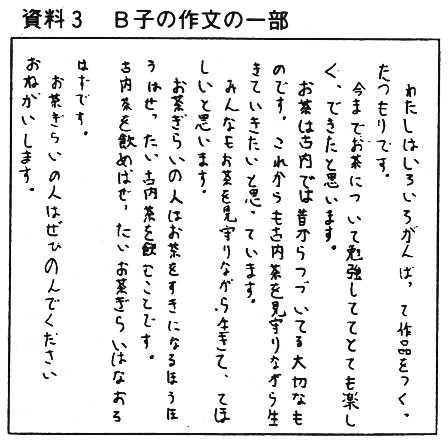 資料3 B子の作文の一部
わたしはいろいろがんばって作品をつくっ
たつもりです。
今までお茶について勉強しててとても楽し
く、できたと思います。
お茶は古内では昔からつづいてる大切なも
のです。これからも古内茶を見守りながら生
きていきたいと思っています。
みんなもお茶を見守りながら生きて、てほ
しいと思います。
お茶ぎらいの人はお茶をすきになるほうほ
うはぜったい古内茶を飲むことです。
古内茶を飲めばぜったいお茶ぎらいはなおる
はずです。
お茶ぎらいの人はぜひのんでください
おねがいします。